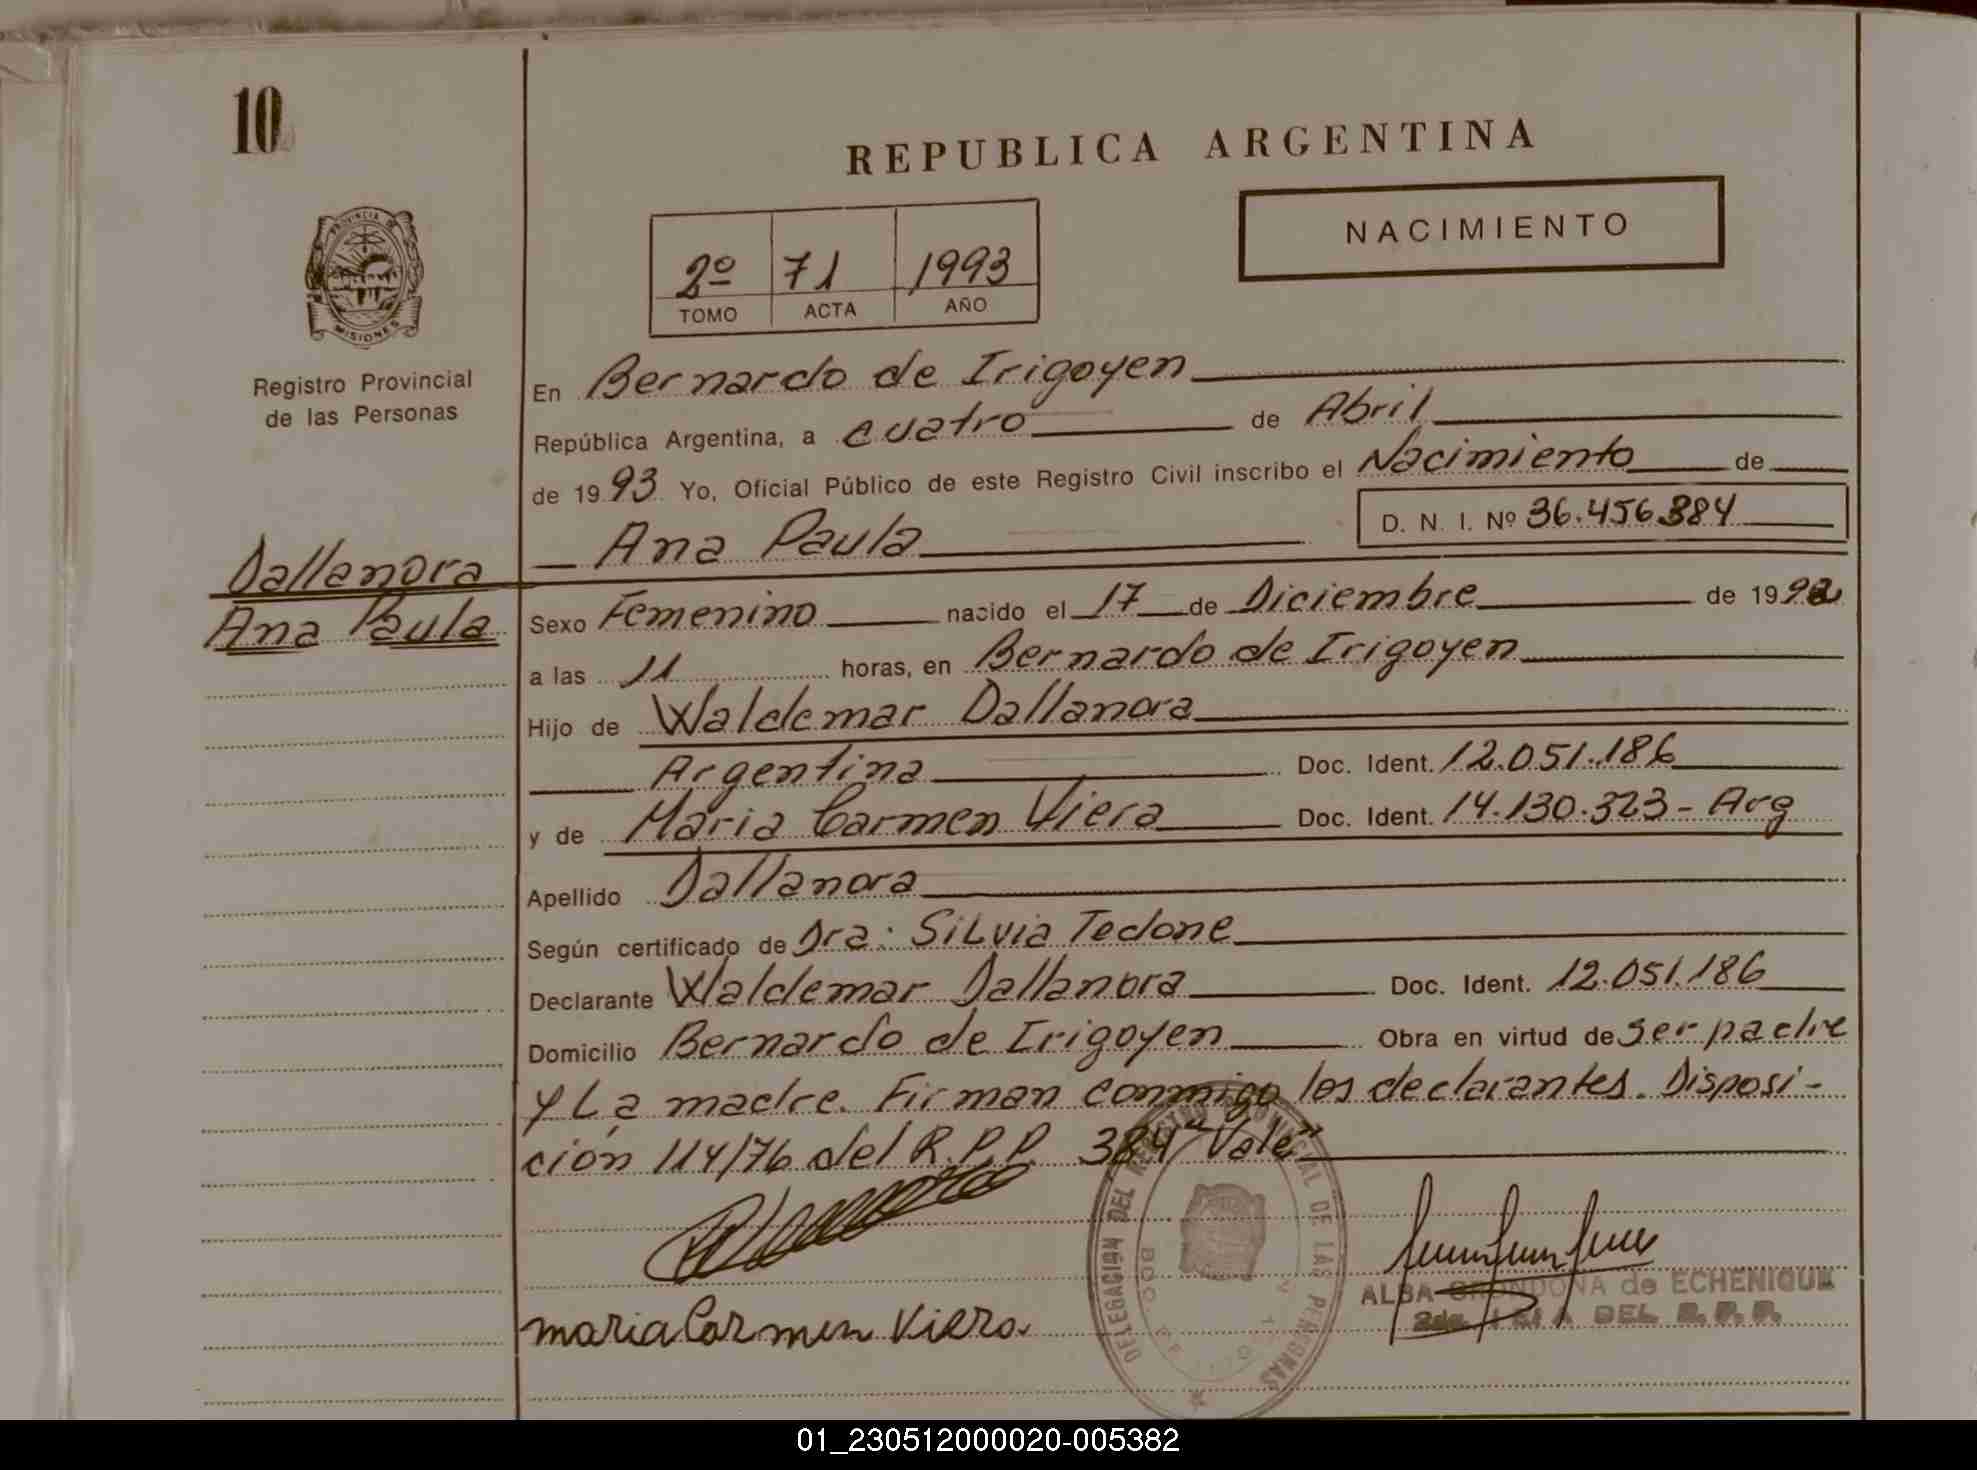 10
REPUBLICA ARGENTINA
NACIMIENTO
2º 71 1993
TOMO ACTA AÑO
PROVINCIA DE
MISIONES
Registro Provincial
de las Personas
En Bernardo de Irigoyen
República Argentina, a cuatro de Abril
de 1993 Yo, Oficial Público de este Registro Civil inscribo el Nacimiento de
D. N. I. Nº 36.456.384
Ana Paula
Dallanora
Ana Paula
Sexo Femenino nacido el 17 de Diciembre de 1992
a las 11 horas, en Bernardo de Irigoyen
Hijo de Waldemar Dallanora
Argentina Doc. Ident. 12.051.186
y de Maria Carmen Viera Doc. Ident. 14.130.323 - Arg
Apellido Dallanora
Según certificado de Dra: Silvia Tedone
Declarante Waldemar Dallanora Doc. Ident. 12.051.186
Domicilio Bernardo de Irigoyen Obra en virtud de ser padre
y La madre. Firman conmigo los declarantes. Disposi-
ción 114/76 del R.P.P. 384 "Vale"
DELEGACION DEL REGISTRO PROVINCIAL DE LAS PERSONAS
maria Carmen Viera
ALBA GRONDONA de ECHENIQUE
DEL R.P.P.
01_230512000020-005382